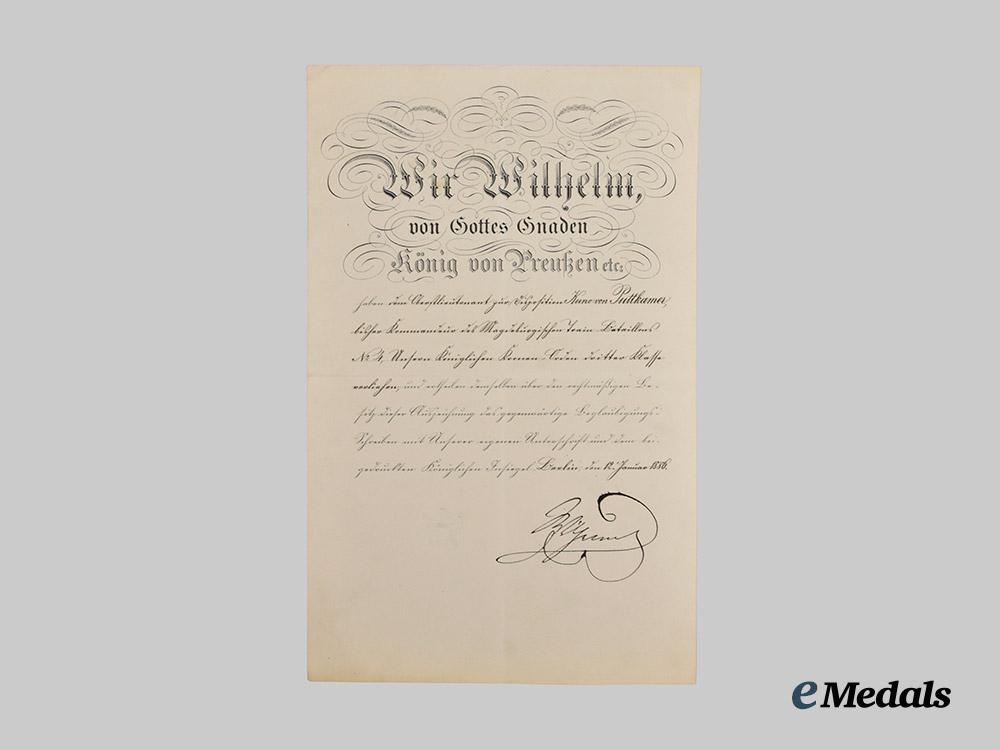 Wir Wilhelm,
von Gottes Gnaden
König von Preußen etc:
haben dem Oberstlieutenant zur Disposition Kuno von Puttkamer,
bisher Kommandeur des Magdeburgischen Train-Bataillons
No 4, Unsern Königlichen Kronen-Orden dritter Klasse
verliehen, und ertheilen demselben über den rechtmäßigen Be-
sitz dieser Auszeichnung das gegenwärtige Beglaubigungs-
Schreiben mit Unserer eigenen Unterschrift und dem bei-
gedruckten Königlichen Insiegel. Berlin, den 12. Januar 1886.
Wilhelm
eMedals